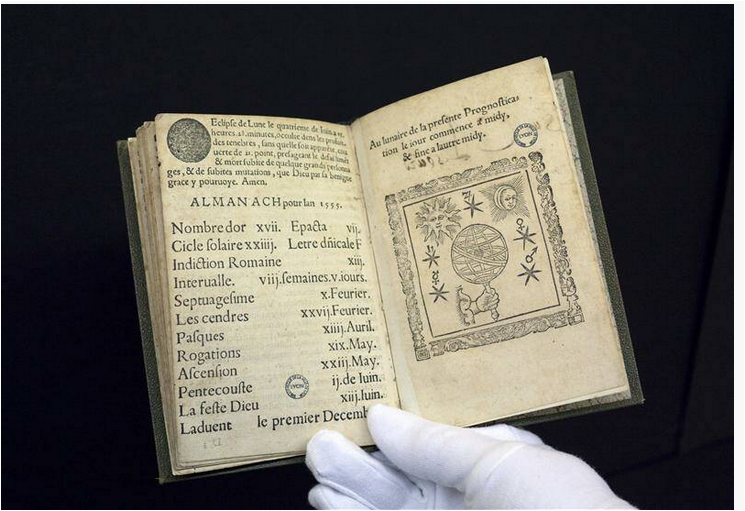 Eclipse de Lune le quatrieme de Iuin a
heures. 21. minutes, occulte dens les profun
des tenebres, sans quelle soit apparēte, cou
uerte de point, presageant le
& mort subite de quelque grands personna
ges, & de subites mutations, que Dieu par sa benigne
grace y pouruoye. Amen.
ALMANACH pour lan 1555.
Nombre dor xvii. Epacta vij.
Cicle solaire xxiiij. Letre dñicale F
Indiction Romaine xiij.
Interualle. viij.semaines.v.iours.
Septuagesime x.Feurier.
Les cendres xxvij.Feurier.
Pasques xiiij.Auril.
Rogations xix.May.
Ascension xxiij.May.
Pentecouste ij.de Iuin.
La feste Dieu xiij.Iuin.
Laduent le premier Decemb
LYON
Au lunaire de la presente Prognostica-
tion le iour commence a midy,
& fine a lautre midy.
LYON